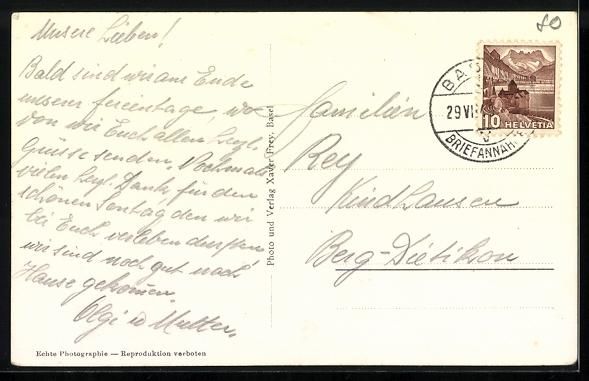 Unsere Lieben!
Bald sind wir am Ende
unserer Ferientage, wo
von wir Euch allen hzgl.
Grüsse senden. Nochmals
vielen hzgl. Dank, für den
schönen Sontag den wir
bei Euch verleben durften
wir sind noch gut nach
Hause gekommen.
Olgi u Mutter.
Echte Photographie — Reproduktion verboten
Photo und Verlag Xaver Frey, Basel
80
BAS
29 VI
BRIEFANNAH
10 HELVETIA
Familien
Rey
Kindhausen
Berg-Dietikon